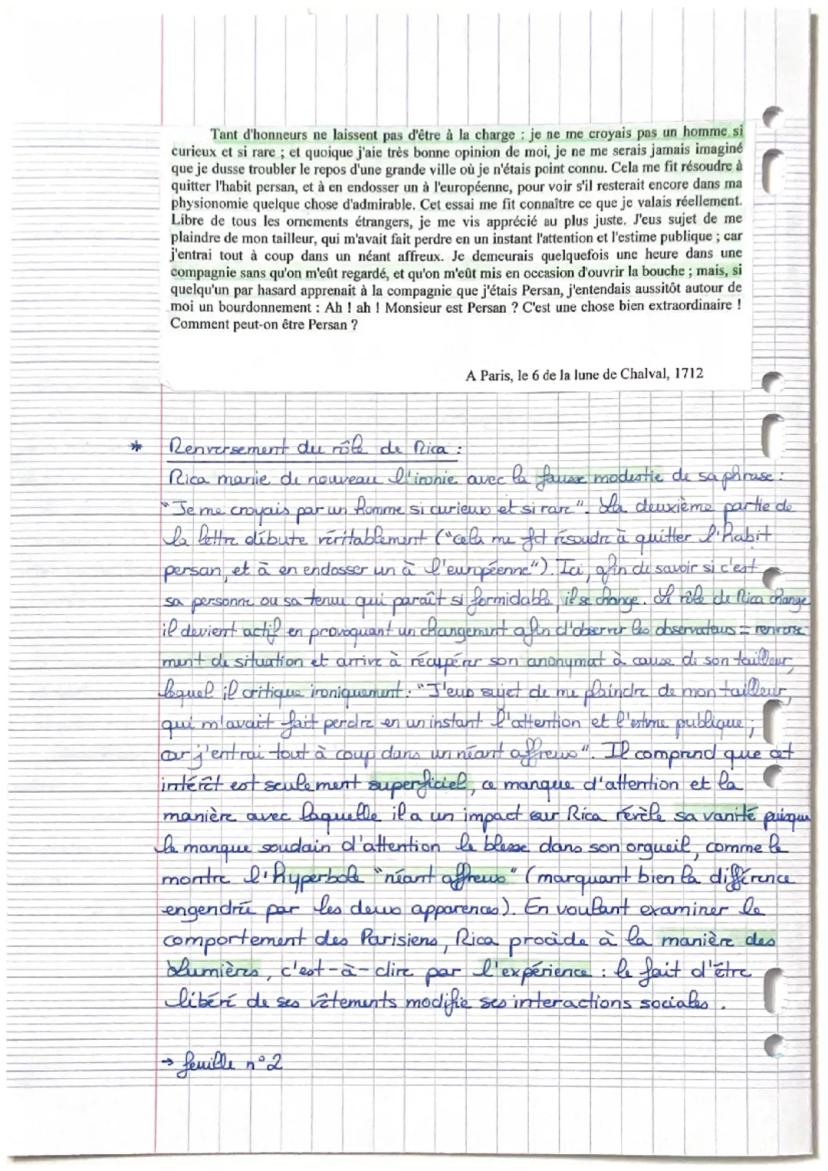 Tant d'honneurs ne laissent pas d'être à la charge : je ne me croyais pas un homme si
curieux et si rare ; et quoique j'aie très bonne opinion de moi, je ne me serais jamais imaginé
que je dusse troubler le repos d'une grande ville où je n'étais point connu. Cela me fit résoudre à
quitter l'habit persan, et à en endosser un à l'européenne, pour voir s'il resterait encore dans ma
physionomie quelque chose d'admirable. Cet essai me fit connaître ce que je valais réellement.
Libre de tous les ornements étrangers, je me vis apprécié au plus juste. J'eus sujet de me
plaindre de mon tailleur, qui m'avait fait perdre en un instant l'attention et l'estime publique ; car
j'entrai tout à coup dans un néant affreux. Je demeurais quelquefois une heure dans une
compagnie sans qu'on m'eût regardé, et qu'on m'eût mis en occasion d'ouvrir la bouche ; mais, si
quelqu'un par hasard apprenait à la compagnie que j'étais Persan, j'entendais aussitôt autour de
moi un bourdonnement : Ah ! ah ! Monsieur est Persan ? C'est une chose bien extraordinaire !
Comment peut-on être Persan ?
A Paris, le 6 de la lune de Chalval, 1712
* Renversement du rôle de Rica :
Rica manie de nouveau l'ironie avec la fausse modestie de sa phrase :
"Je me croyais par un homme si curieux et si rare". La deuxième partie de
la lettre débute véritablement ("cela me fit résoudre à quitter l'habit
persan, et à en endosser un à l'européenne"). Ici, afin de savoir si c'est
sa personne ou sa tenue qui paraît si formidable, il se change. Le rôle de Rica change
il devient actif en provoquant un changement afin d'observer les observateurs = renverse-
ment de situation et arrive à récupérer son anonymat à cause de son tailleur,
lequel il critique ironiquement : "J'eus sujet de me plaindre de mon tailleur,
qui m'avait fait perdre en un instant l'attention et l'estime publique ;
car j'entrai tout à coup dans un néant affreux". Il comprend que cet
intérêt est seulement superficiel, ce manque d'attention et la
manière avec laquelle il a un impact sur Rica révèle sa vanité puisque
le manque soudain d'attention le blesse dans son orgueil, comme le
montre l'hyperbole "néant affreux" (marquant bien la différence
engendrée par les deux apparences). En voulant examiner le
comportement des Parisiens, Rica procède à la manière des
Lumières, c'est-à-dire par l'expérience : le fait d'être
libéré de ses vêtements modifie ses interactions sociales.
→ feuille n°2